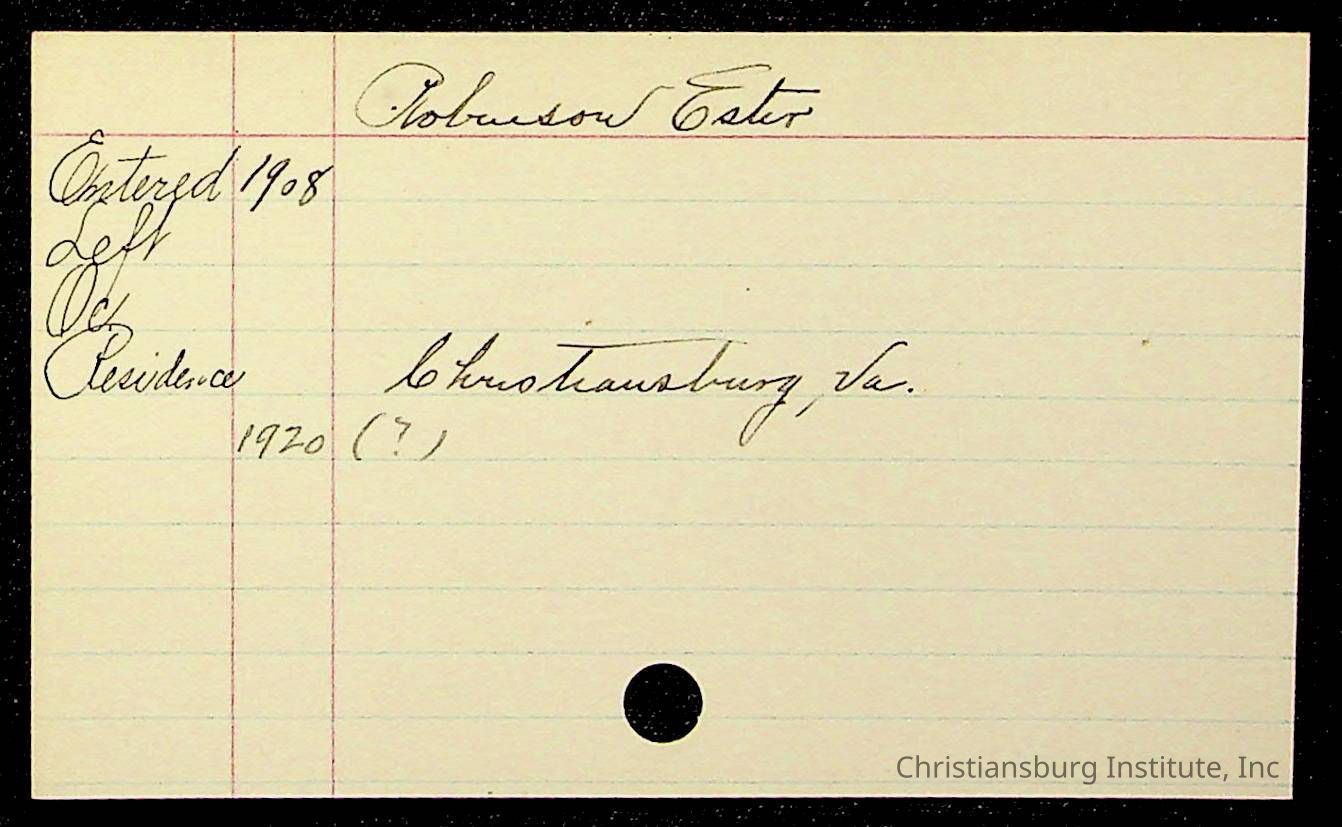 Robinson Ester
Entered 1908
Left
Oc.
Residence Christiansburg, Va.
1920 (?)
Christiansburg Institute, Inc